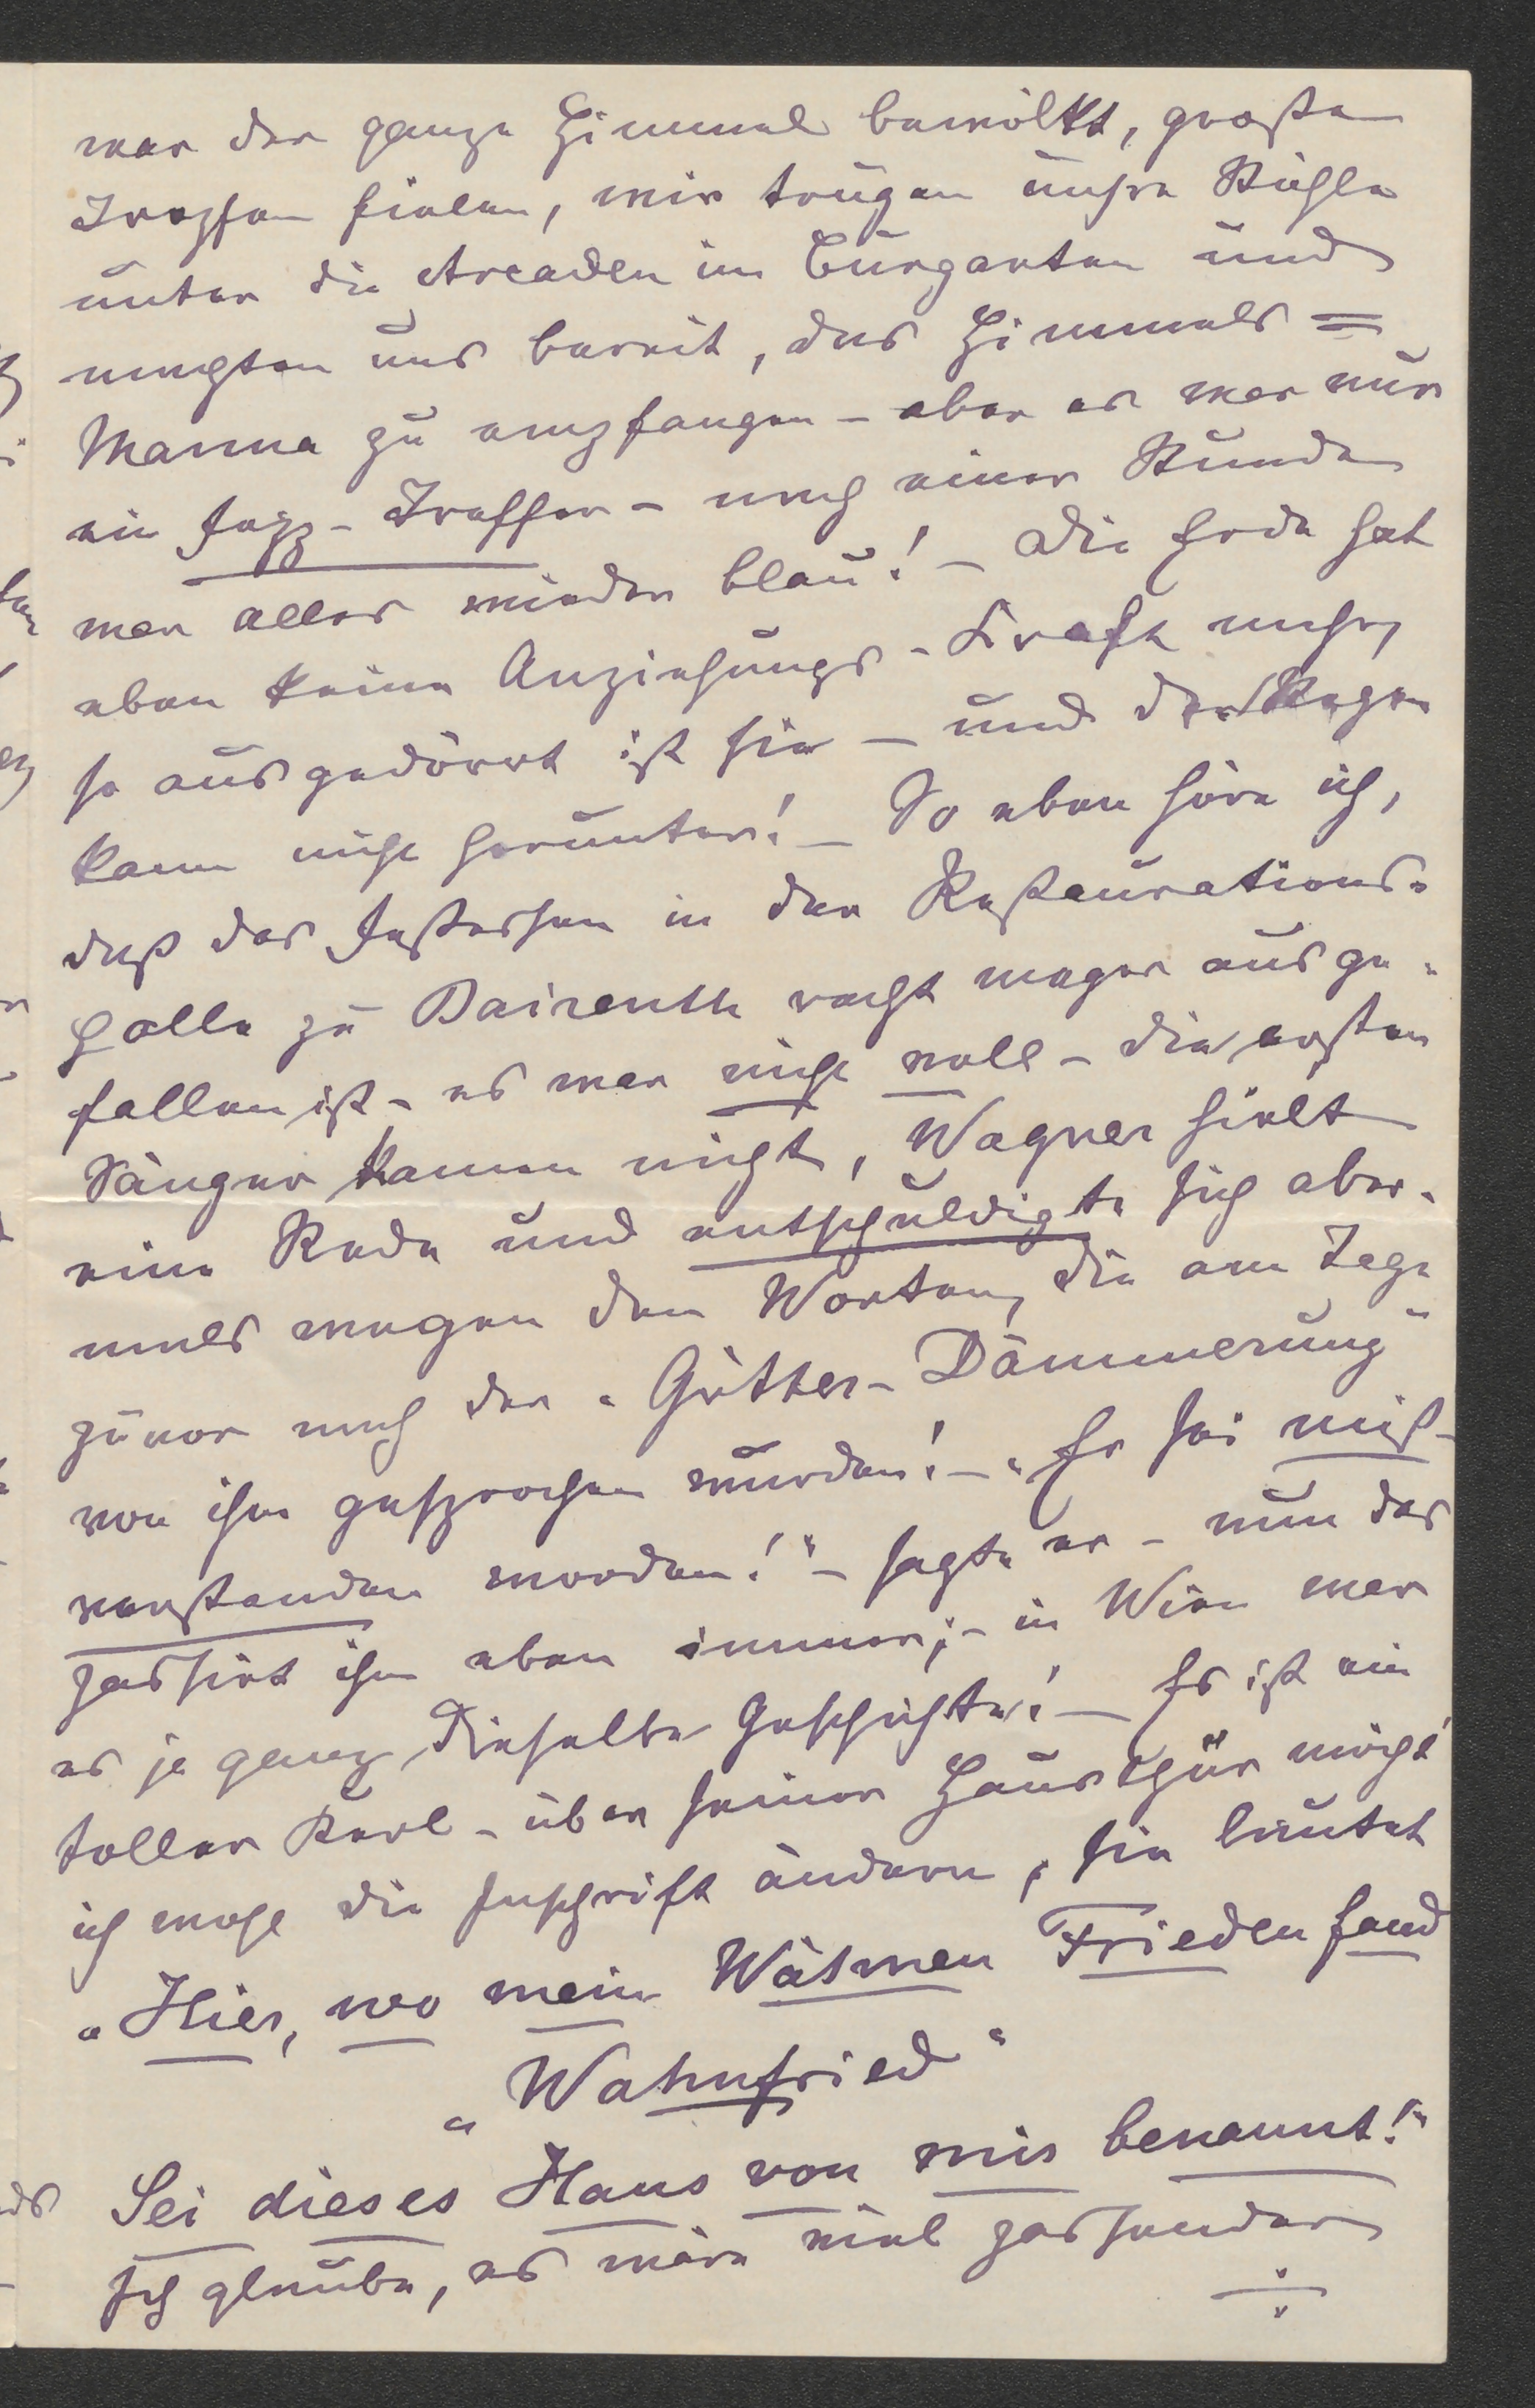 war der ganze Himmel bewölkt, große
Tropfen fielen, wir trugen unsre Stühle
unter die Arcaden im Curgarten und
machten uns bereit, das Himmels=
Manna zu empfangen – aber es war nur
ein Jazz-Treffer – nach einer Stunde
war alles wieder blau! – Die Erde hat
eben keine Anziehungs-Kraft mehr,
so ausgedörrt ist sie – und der Regen
kann nicht herunter! – So eben höre ich,
daß das Festessen in der Restaurations-
Halle zu Baireuth recht mager ausge-
fallen ist – es war nicht voll – die ersten
Sänger kamen nicht, Wagner hielt
eine Rede und entschuldigte sich aber-
mals wegen den Worten, die am Tage
zuvor nach der „Götter-Dämmerung"
von ihm gesprochen wurden! – „Er sei miß-
verstanden worden!" – sagte er – nun das
passirt ihm eben immer; – in Wien war
es ja ganz dieselbe Geschichte! – Es ist ein
toller Kerl – über seiner Hausthür möcht'
ich wohl die Inschrift ändern, sie lautet
„Hier, wo mein Wähnen Frieden fand
„Wahnfried"
Sei dieses Haus von mir benannt!"
Ich glaube, es wäre viel passender